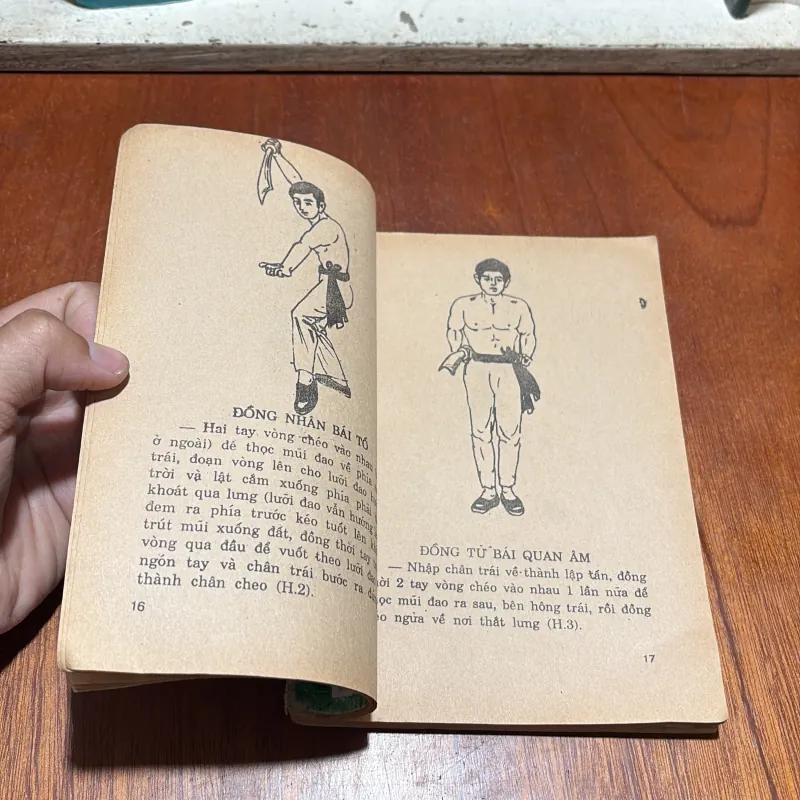 ĐỒNG NHÂN BÁI TỔ
— Hai tay vòng chéo vào nhau
ở ngoài) để thọc mũi đao về phía
trái, đoạn vòng lên cho lưỡi đao
trời và lật cắm xuống phía phải
khoát qua lưng (lưỡi đao vẫn hướng
đem ra phía trước kéo tuốt lên
trút mũi xuống đất, đồng thời tay
vòng qua đầu để vuốt theo lưỡi
ngón tay và chân trái bước ra
thành chân cheo (H.2).
16
ĐỒNG TỬ BÁI QUAN ÂM
— Nhập chân trái về thành lập tấn, đồng
2 tay vòng chéo vào nhau 1 lần nữa để
mũi đao ra sau, bên hông trái, rồi đồng
ngửa về nơi thắt lưng (H.3).
17